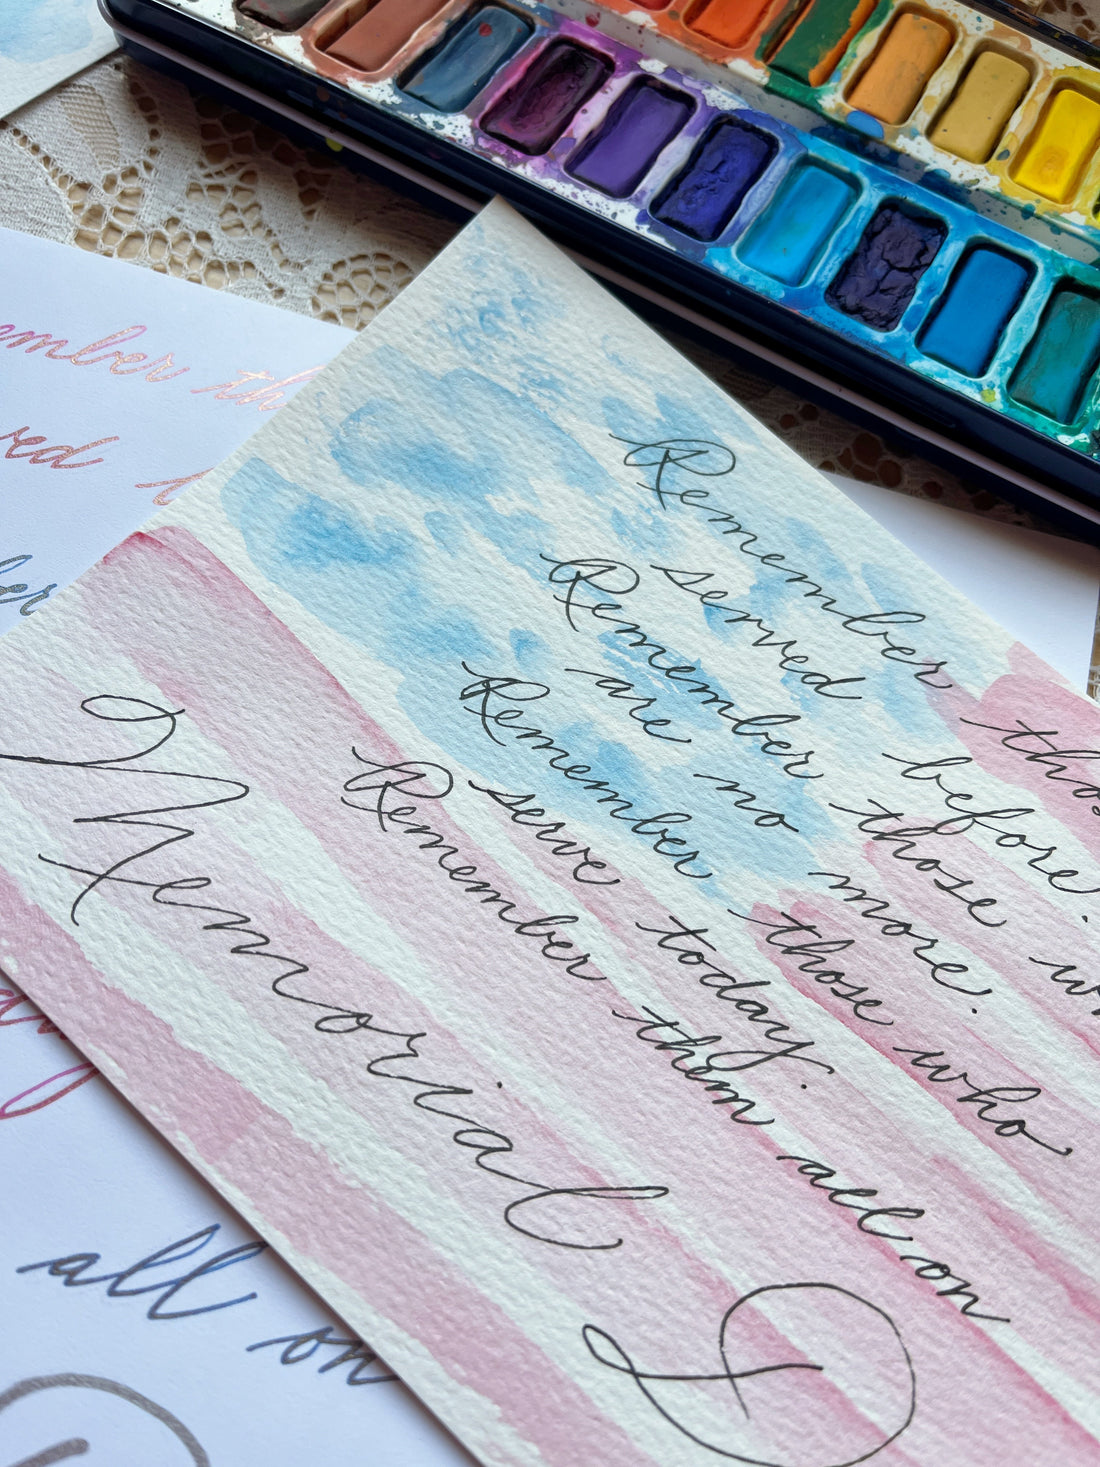 Remember thos
served before.
Remember those wh
are no more.
Remember those who
serve today.
Remember them all on
Memorial D
ember th
ved
ber
all on